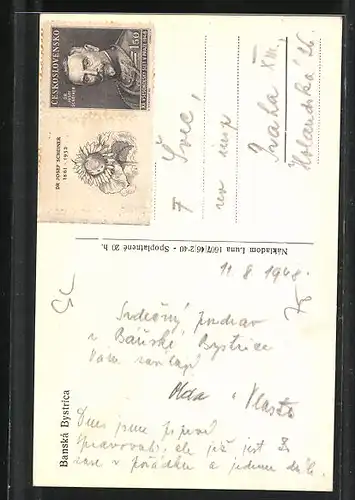 ČESKOSLOVENSKO
1.50
DR JOSEF SCHEINER
1861 - 1932
F Švec,
rev insp
Praha XIII,
Holandská 26
Nákladom Luna 1607/46/2·40 - Spoplatnené 20 h.
11 8 1948.
Srdečný pozdrav
z Báňské Bystrice
Vám zasílají
Olda a Vlasta
Dnes jsme
ale již jest
zase v pořádku a jedeme dále
Banská Bystrica